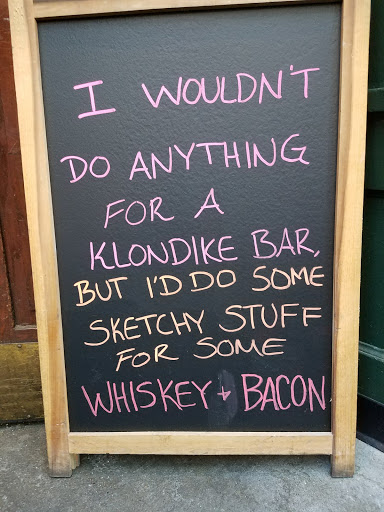 I WOULDN'T
DO ANYTHING
FOR A
KLONDIKE BAR,
BUT I'D DO SOME
SKETCHY STUFF
FOR SOME
WHISKEY + BACON